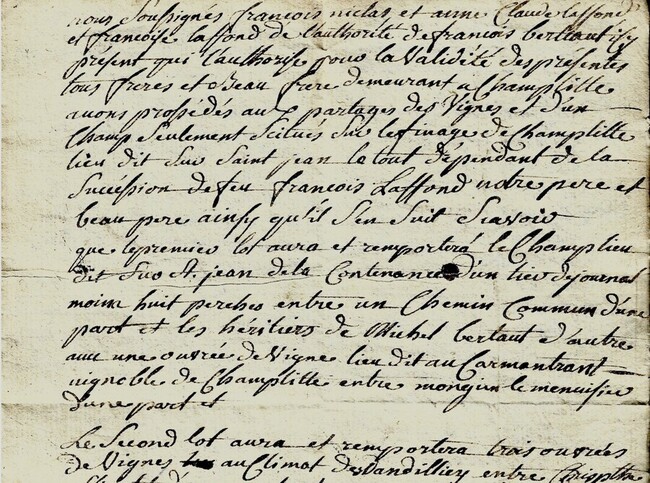 nous soussignés francois niclas, et anne Claude laffond
et francoise laffond de l'authorité de francois bertaut icy
présent qui l'authorise pour la Validité des présentes
tous freres et Beau frere demeurant a Champlitte
avons prossédés aux partages des Vignes et d'un
Champ seulement scitues sur le finage de Champlitte
lieu dit sur Saint jean le tout dépendant de la
succéssion de feu francois Laffond notre pere et
beau pere ainsy qu'il s'en suit Scavoir
que le premier lot aura et remportera le Champ lieu
dit sur St. jean de la Contenance d'un tier de journal
moins huit perches entre un Chemin Commun d'une
part et les héritiers de Michel bertaut d'autre
avec une ouvrée de Vigne lieu dit au Carmontrant
vignoble de Champlitte entre mongin le menuisier
d'une part et
Le Second lot aura et remportera trois ouvrées
de Vignes au Climat des Vandilliey entre